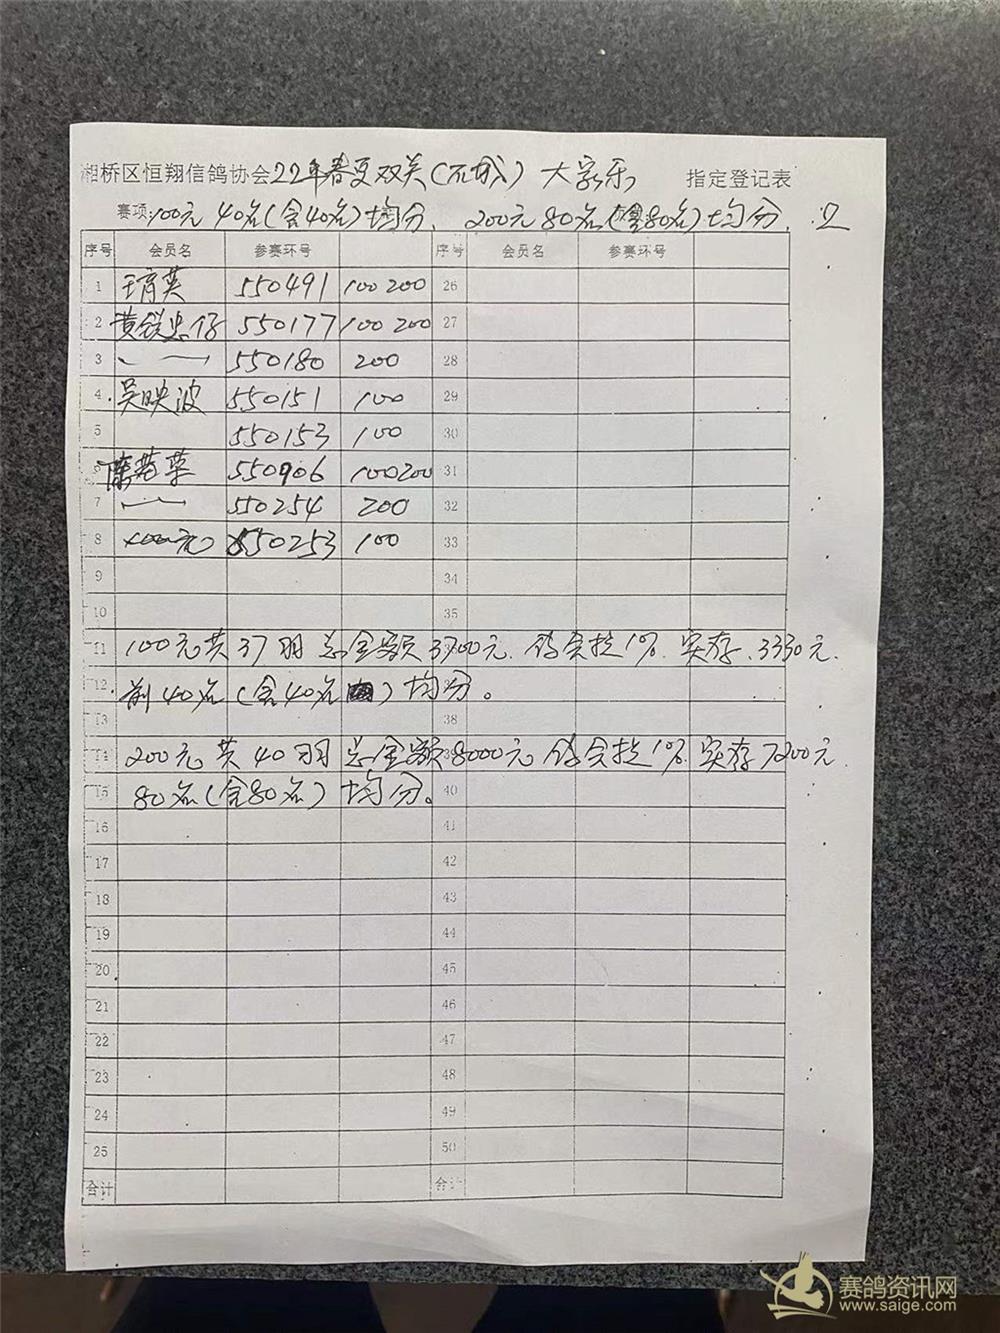 湘桥区恒翔信鸽协会22年春夏双关() 大家乐 指定登记表
赛项:100元 40名(含40名)均分、 200元 80名(含80名)均分. 2
序号 会员名 参赛环号 序号 会员名 参赛环号
1 王育英 550491 100 200 26
2 黄锐忠仔 550177 100 200 27
3 550180 200 28
4 吴映波 550151 100 29
5 550153 100 30
6 陈若苹 550906 100 200 31
7 550254 200 32
8 550253 100 33
9 34
10 35
11 100元共37羽 总金额3700元. 协会扣1%. 实存.3330元.
12 前40名(含40名)均分。
13 38
14 200元共40羽 总金额8000元 协会扣1%. 实存7200元.
15 80名(含80名)均分。 40
16 41
17 42
18 43
19 44
20 45
21 46
22 47
23 48
24 49
25 50
合计 合计
赛鸽资讯网
www.saige.com